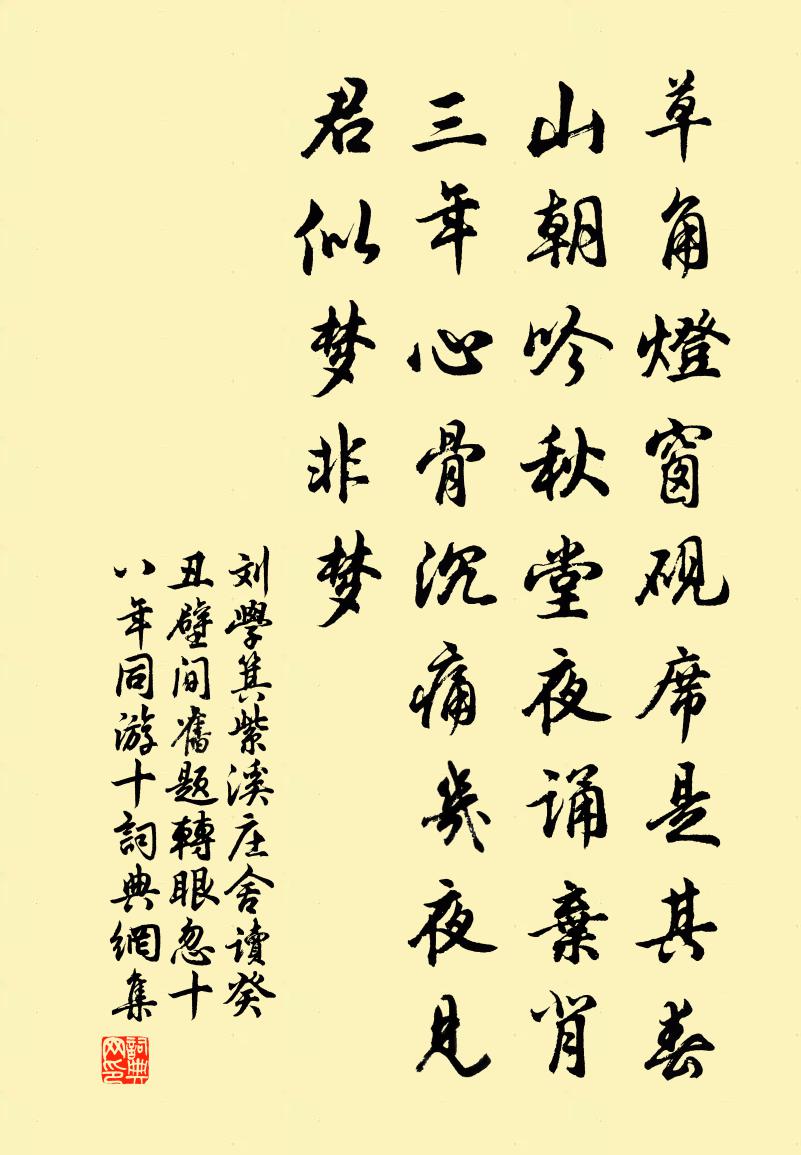 草角燈窗硯席是其春
山朝吟秋堂夜诵棄背
三年心骨沉痛几夜見
君似梦非梦
刘學箕紫溪庄舍读癸
丑壁间舊题轉眼忽十
八年同游十詞典網集
詞典网印